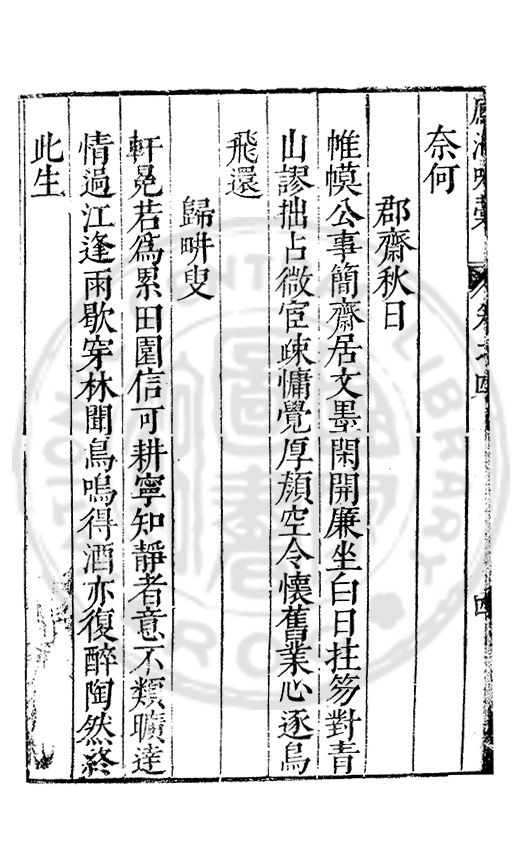 奈何
郡齋秋日
帷幙公事簡齋居文墨閑開簾坐白日拄笏對青
山謬拙占微宦疎慵覺厚顔空令懷舊業心逐鳥
飛還
歸畊叟
軒冕若爲累田園信可耕寧知靜者意不類曠達
情過江逢雨歇穿林聞鳥鳴得酒亦復醉陶然終
此生
卷之四
四